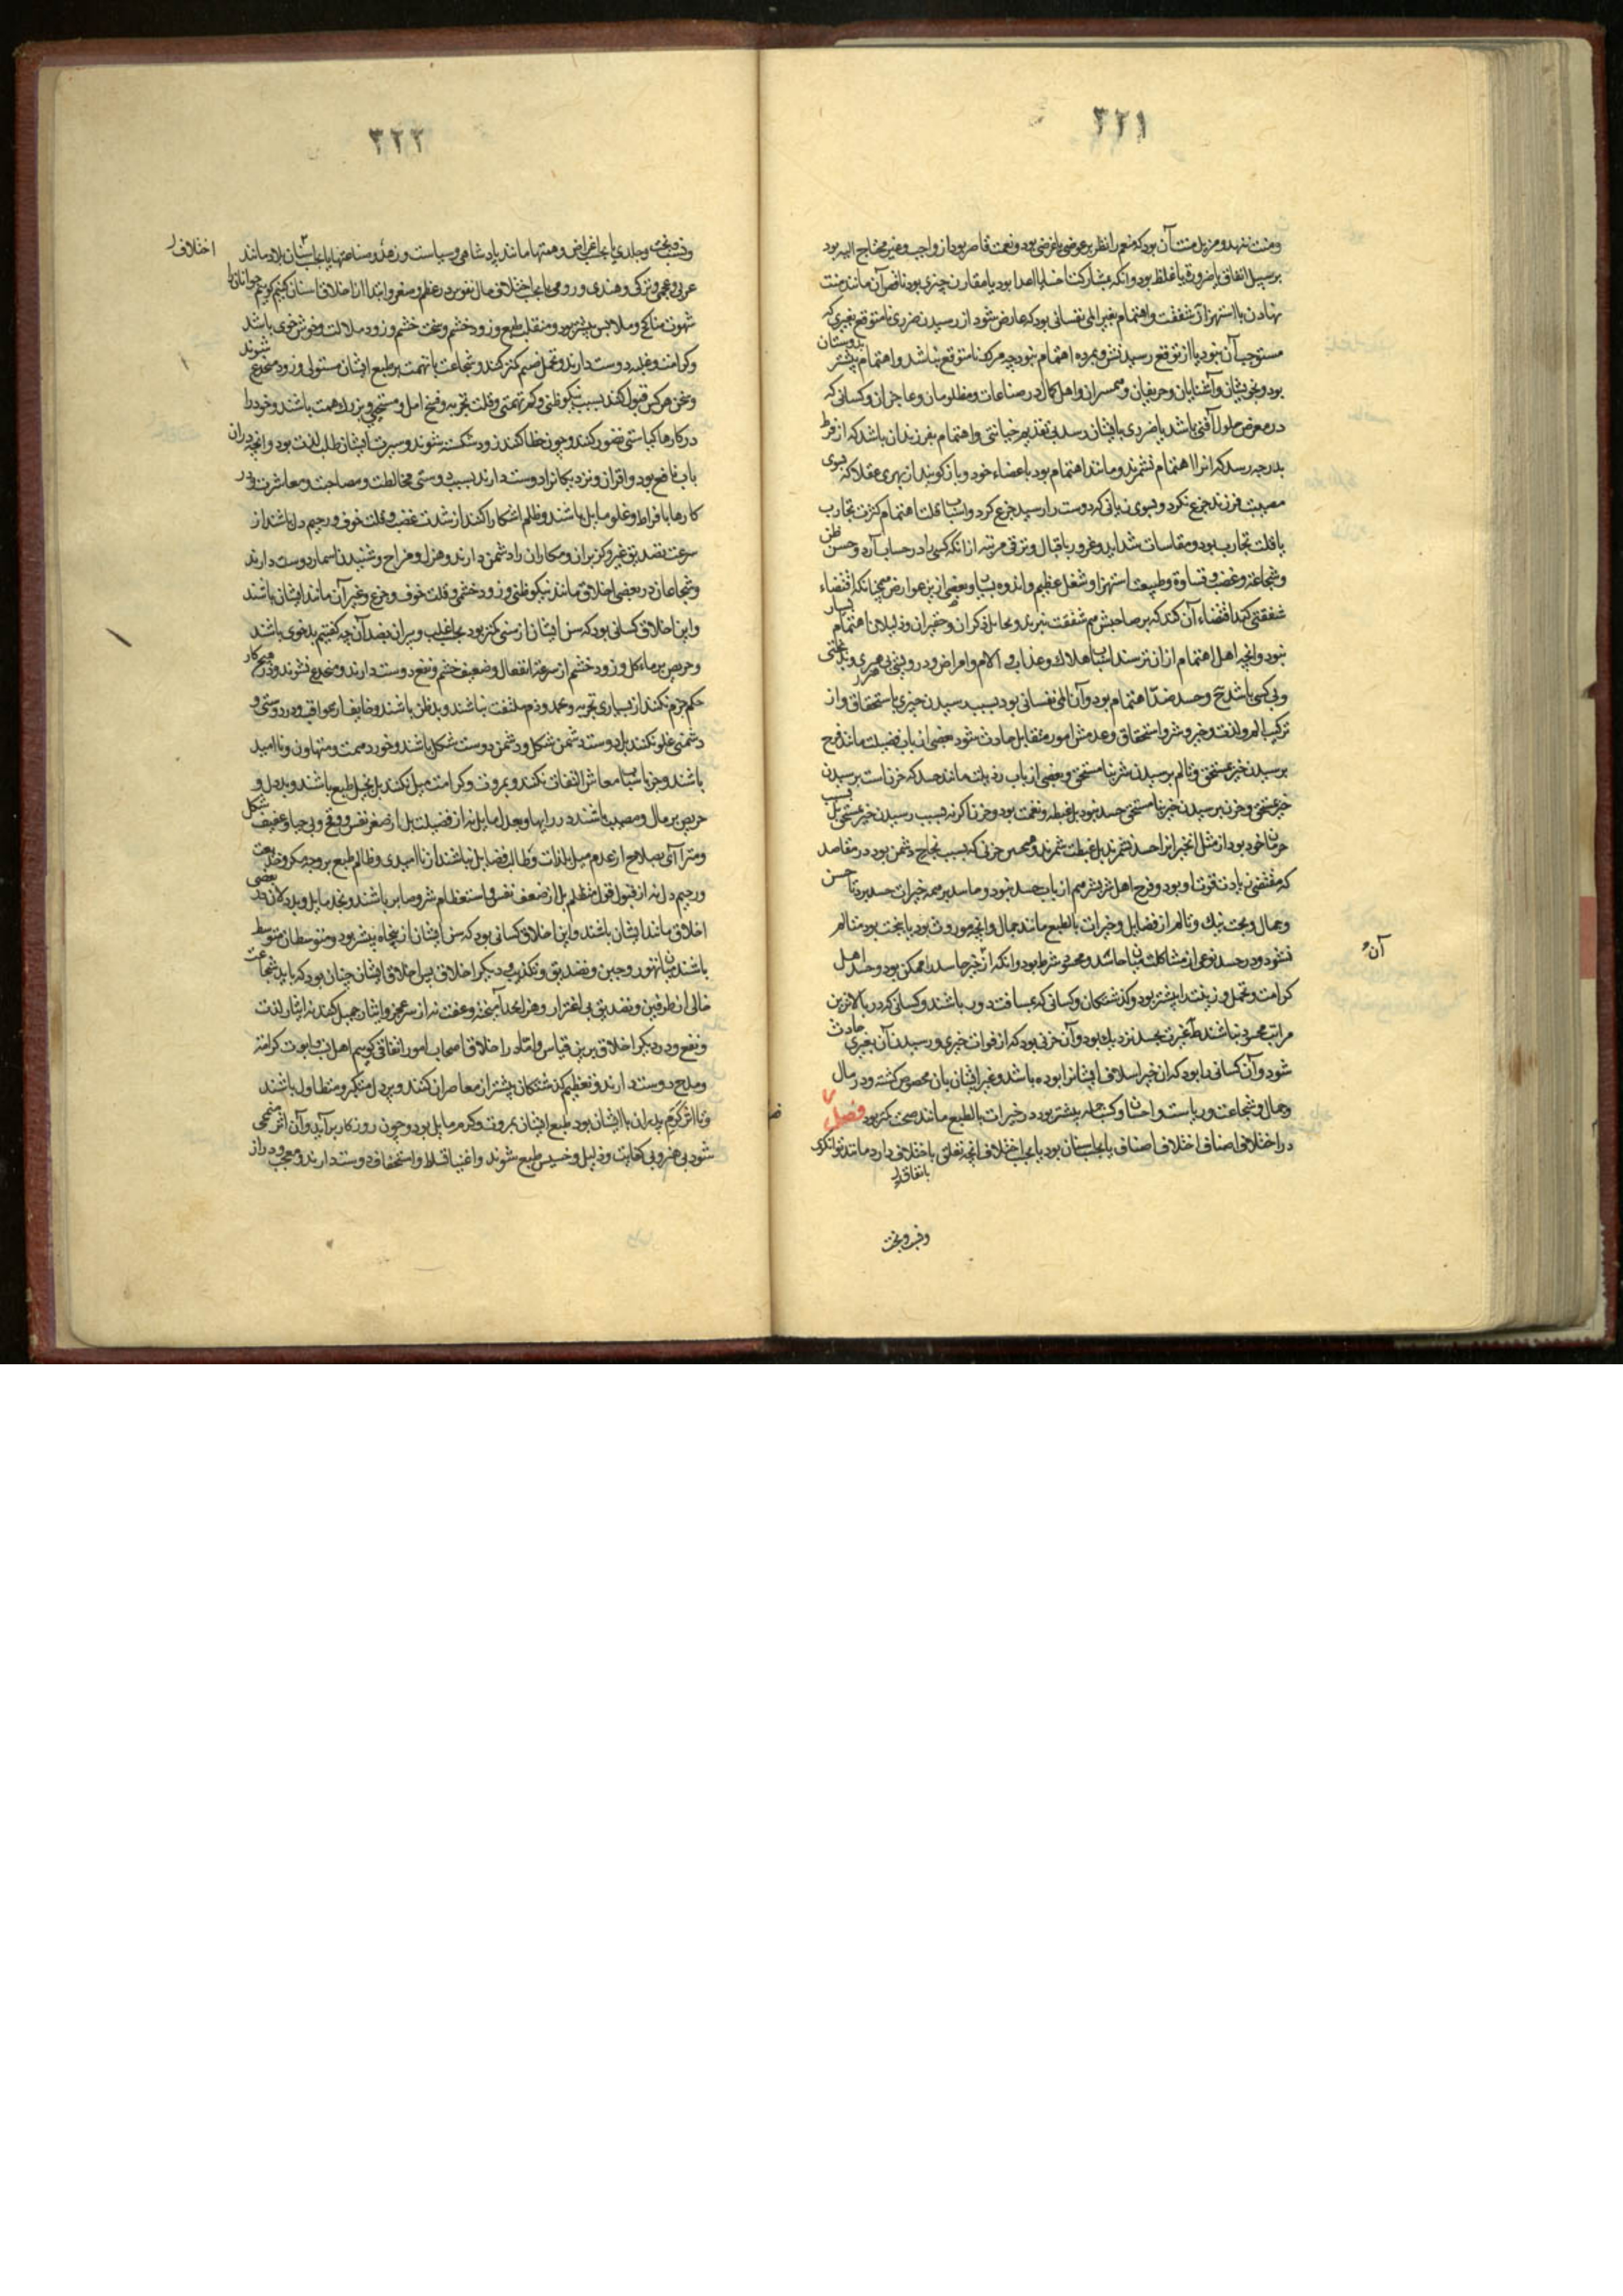 ٣٢١
ومنت ننهد و مزیل منت آن بود که منعم را نظر بر عوضی یا غرضی بود و نعمت قاصر بود از واجب و غیر محتاج الیه بود
بر سبیل اتفاق یا ضرورة یا غلط بود و انکه مشارکت احبا یا اعدا بود یا مقارن چیزی بود ناقص آن مانند منت
نهادن یا استهزا آن شفقت و اهتمام بغیر المی نفسانی بود که عارض شود از رسیدن ضرری نامتوقع بغیری که
مستوجب آن نبود یا از توقع رسیدنش و بمرده اهتمام نبود چه مرگ نامتوقع نباشد و اهتمام بدوستان بیشتر
بود و بخویشان و آشنایان و حریفان و همسران و اهل کمال در صناعات و مظلومان و عاجزان و کسانی که
در معرض حلول آفتی باشد یا ضرری بایشان رسد بی تقدیم خیانتی و اهتمام بفرزندان باشد که از فرط
بدرجه رسد که انرا اهتمام نشمرند و مانند اهتمام بود باعضاء خود و باز گویند از بهری عقلا که بسوی
مصیبت فرزند جزع نکرد و بسوی زیانی که دوست را رسید جزع کرد و اسباب قلت اهتمام کثرت تجارب
یا قلت تجارب بود و مقاسات شداید و غرور باقبال و ترقی مرتبه از انکه کسی را در حساب آرد و حسن ظن
و شجاعة و غضب و قساوة و طبیعت استهزا و شغل عظیم و اندوه بسیار و بعضی ازین عوارض همچنانکه اقتضاء
شفقتی کند اقتضاء آن کند که بر صاحبش هم شفقت نبرند و بحال ذاکران و حقیران و ذلیلان اهتمام بسیار
نبود و انچه اهل اهتمام از ان ترسند اسباب هلاک و عذاب و آلام و امراض و درویشی و بی هنری و بدبختی
و بی کسی باشد و حسد ضد اهتمام بود و آن المی نفسانی بود بسبب رسیدن خیری باستحقاق و از
ترکیب الم و لذت و خیر و شر و استحقاق و عدمش امور متقابل حادث شود بعضی از باب فضیلت مانند فرح
برسیدن خیر بمستحق و تألم برسیدن شر بنامستحق و بعضی از باب رذیلت مانند حسد که حزن است برسیدن
خیر بمستحق و حزن برسیدن خیر بنامستحق حسد نبود بل غبطه و نقمت بود و حزن اگر نه بسبب رسیدن خیر بمستحق بل بسبب
حرمان خود بود از مثل آن خیر انرا حسد نشمرند بل غبطت شمرند و همچنین حزنی که بسبب نجاح دشمن بود در مقاصد
که مقتضی زیادت قوت او بود و فرح اهل شر بشر هم از باب حسد نبود و حاسد بر همه خیرات حسد برد تا حسن
و جمال و بخت نیک و تألم از فضایل و خیرات بالطبع مانند جمال و انچه موروث بود یا ببخت بود متألم
نشود و در حسد نوعی از مشاکلت میان حاسد و محسود شرط بود و انکه آن خیر حاسد را ممکن بود و حسد اهل
کرامت و تجمل و زینت را بیشتر بود و گذشتگان و کسانی که بمسافت دور باشند و کسانی که در بالاترین
مراتب محسود نباشند اما غیرت بحسد نزدیک بود و آن حزنی بود که از فوات خیری و رسیدن آن بغیری حادث
شود و آن کسانی را بود که ان خیر اسلاف ایشانرا بوده باشد و غیر ایشان بان مخصوص گشته و در مال
و جمال و شجاعت و ریاست و احسان و کسب جاه بیشتر بود و در خیرات بالطبع مانند صحت کمتر بود فصل ٧
در اختلاف اصناف اختلاف اصناف یا بحسب اسنان بود یا بحسب اختلاف انچه تعلق باختلاف دارد مانند توانگری
باتفاق دارد
و نسب و بخت
آن
٣٢٢
و نسب و بخت و جلدی یا بحسب اغراض و همتها مانند پادشاهی و سیاست و زهد و صناعتها یا بحسب اسنان بلاد مانند
اختلاف
عربی و عجمی و ترکی و هندی و رومی یا بحسب اختلاف حال نفوس در عظم و صغر و ابتدا از اخلاق اسنان کنیم گوئیم جوانان را
شهوت مناکح و ملابس بیشتر بود و متقلب طبع و زود خشم و سخت خشم و زود ملالت و خوش خوی باشد
و کرامت و غلبه دوست دارند و تحمل ضیم کمتر کنند و شجاعت با تهمت بر طبع ایشان مستولی و زود منخدع شوند
و سخن هر کس قبول کنند بسبب نیکو ظنی و کم تهمتی و قلت تجربه و فسح امل و مستحیی و بزرگ همت باشند و خود را
در کارها کیاستی تصور کنند و چون خطا کنند زود شکسته شوند و سیرت ایشان طلب لذت بود و انچه در ان
باب نافع بود و اقران و نزدیکان را دوست دارند بسبب دوستی مخالطت و مصاحبت و معاشرت و در
کارها بافراط و غلو مایل باشند و ظلم اشکارا کنند از شدت غضب و قلت خوف و رحیم دل باشند از
سرعت تصدیق غیر و گربزان و مکاران را دشمن دارند و هزل و مزاح و شنیدن اسمار دوست دارند
و شجاعان در بعضی اخلاق مانند نیکو ظنی و زود خشمی و قلت خوف و جزع و غیر آن مانند ایشان باشند
و این اخلاق کسانی بود که سن ایشان از سی کمتر بود بحسب اغلب و پیران بضد آن چه گفتیم بدخوی باشند
و حریص بر ماکل و زود خشم از سرعة انفعال و ضعیف خشم و نفع دوست دارند و منخدع نشوند و در هیچ کار
حکم جزم نکنند از بسیاری تجربه و بحمد و ذم ملتفت نباشند و بدظن باشند و خایف از عواقب و در دوستی و
دشمنی غلو نکنند بل دوست دشمن شکل و دشمن دوست شکل باشند و خورد همت و متهاون و ناامید
باشند و جز باسباب معاش التفات نکنند و بمروت و کرامت میل نکنند بل بخیل طبع باشند و بددل و
حریص بر مال و مصیب باشند در رایها و بعدل مایل نه از فضیلت بل از صغر نفس و وقح و بی حیا و عفیف شکل
و مترائی بصلاح از عدم میل بلذات و طالب فضایل نباشند از ناامیدی و ظالم طبع بر وجه مکر و خدیعت
و رحیم دل نه از قبول قول متظلم بل از ضعف نفس و استعظام شر و صابر باشند و بجد مایل و بددلان در بعضی
اخلاق مانند ایشان باشند و این اخلاق کسانی بود که سن ایشان از پنجاه بیشتر بود و متوسطان متوسط
باشند میان تهور و جبن و تصدیق و تکذیب و دیگر اخلاق پس اخلاق ایشان چنان بود که باید شجاعت
خالی از طرفین و تصدیق بی اغترار و هزل بجد آمیخته و عفت نه از سر عجز و ایثار جمیل کنند نه ایثار لذت
و نفع و در دیگر اخلاق برین قیاس و اما در اخلاق اصحاب امور اتفاقی گوییم اهل نسب ابوت کرامة
و مدح دوست دارند و تعظیم گذشتگان بیشتر از معاصران کنند و پر دل متکبر و متطاول باشند
و تا اثر کرم پدران با ایشان بود بطبع ایشان بمروت و کرم مایل بود و چون روزگار برآید و آن اثر منمحی
شود بی هنر و بی کفایت و ذلیل و خسیس طبع شوند و اغنیا تسلط و استخفاف دوست دارند و معجب و دراز